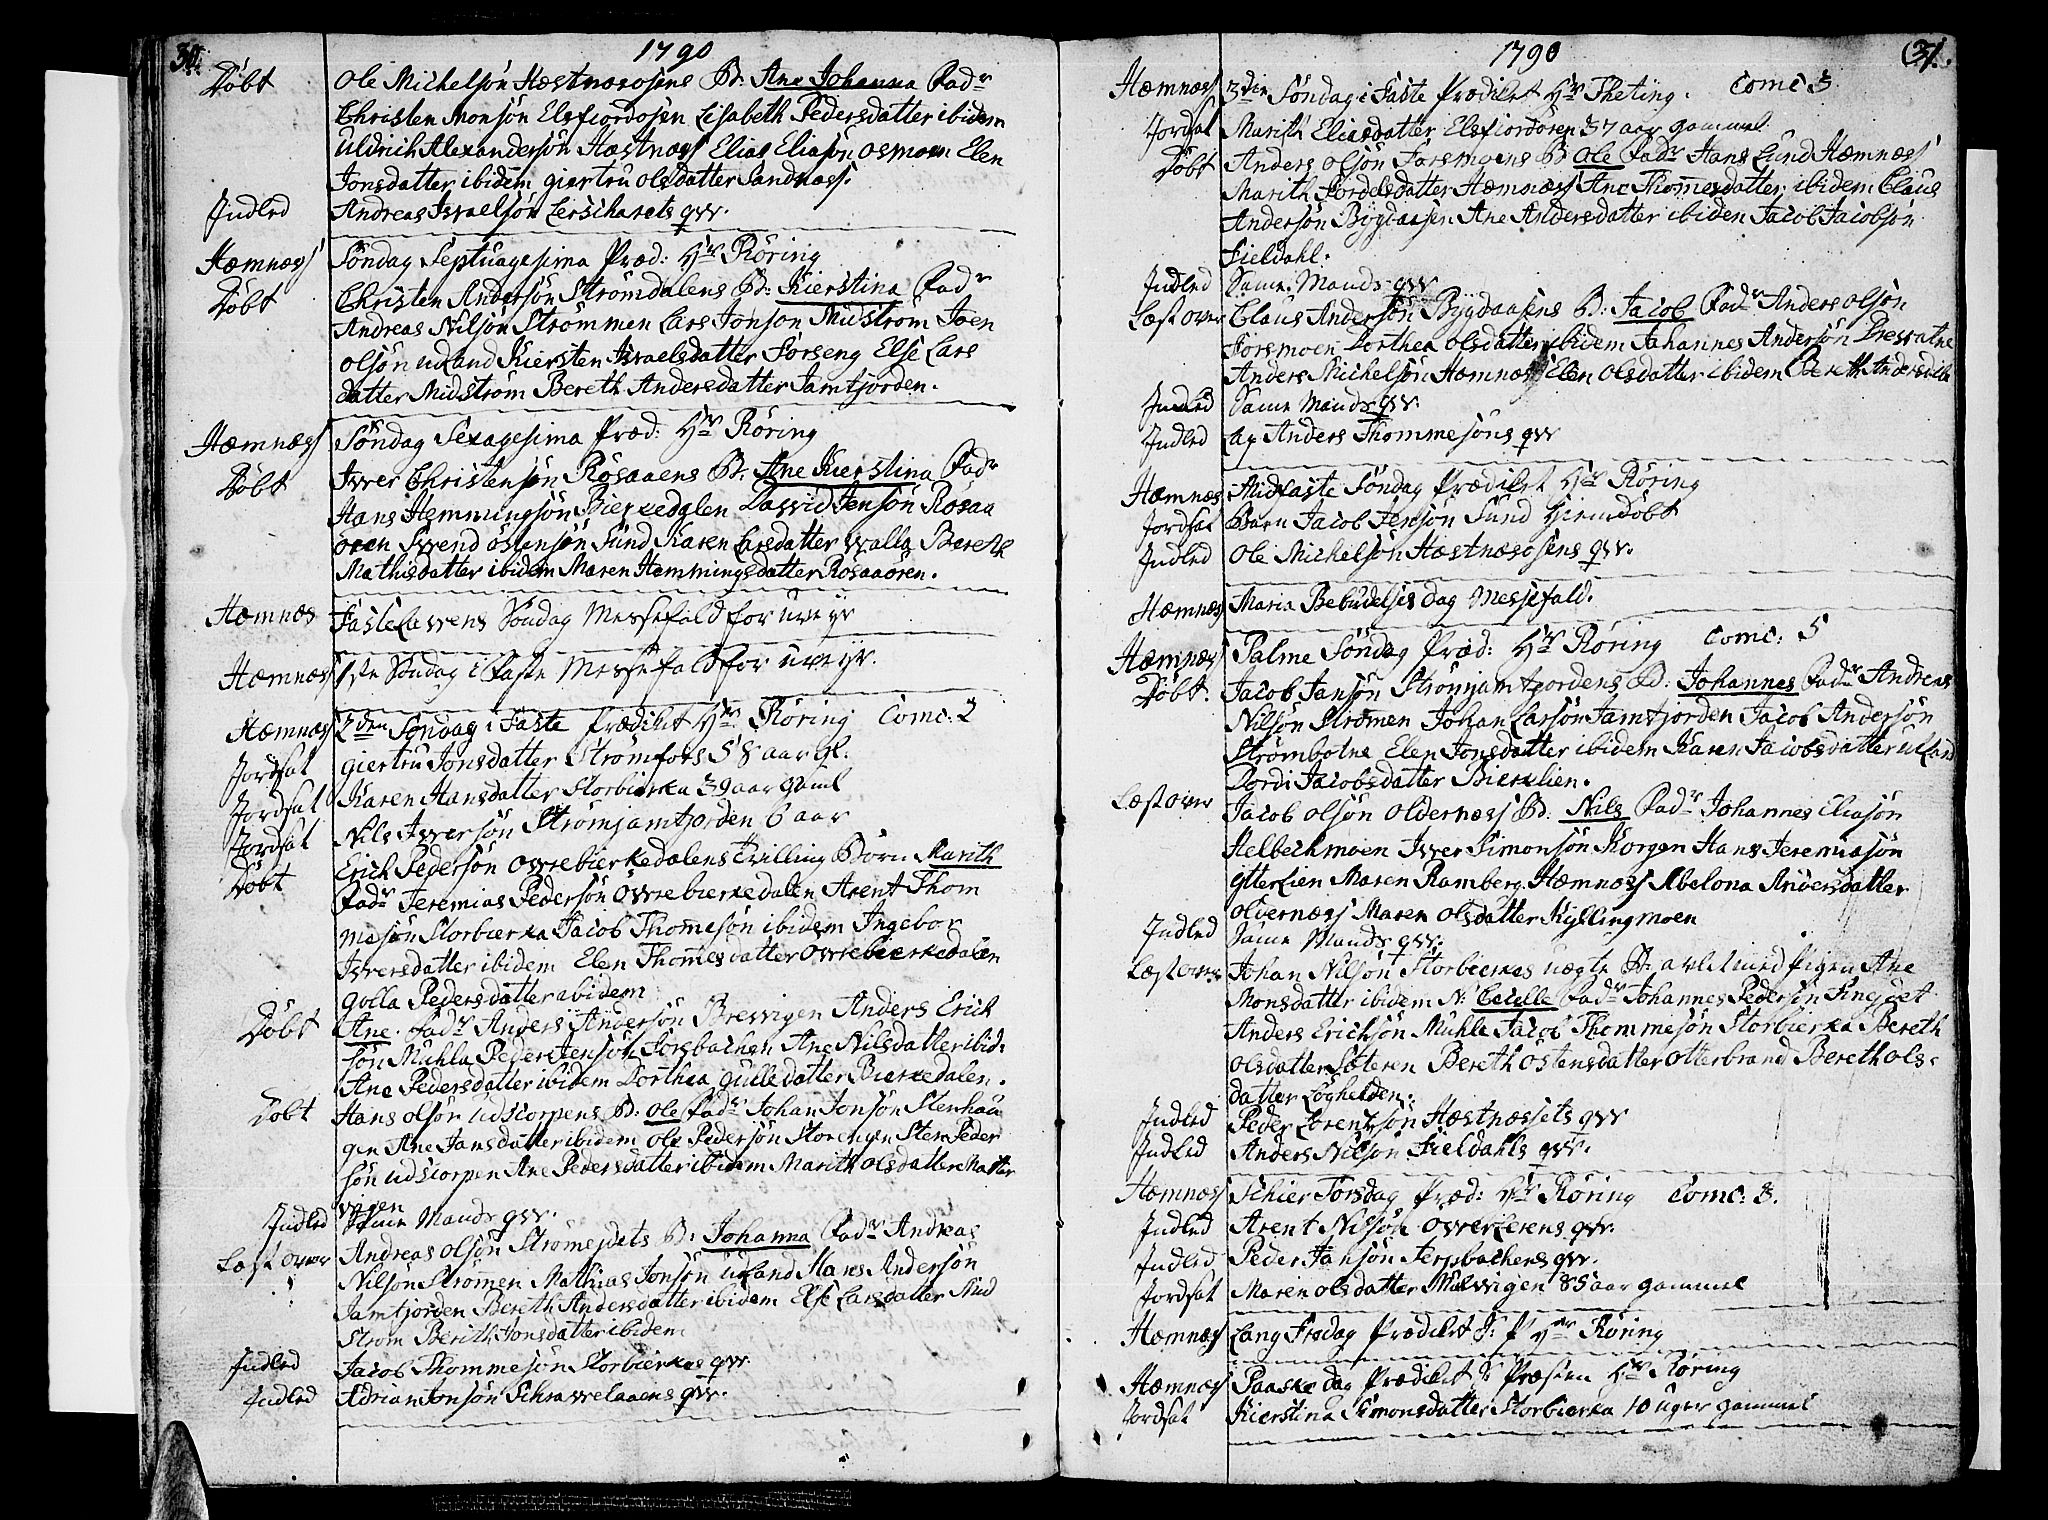 30.
1790
Döbt Ole Michelsön Hæstnæsosens B: Ane Johanna Fadr
Christen Monsön Elsfiordosen Lisabeth Pedersdatter ibidem
Uldrich Alexandersön Hæstnæss Elias Eliasön Osmoen Elen
Jonsdatter ibidem giertru Olsdatter Sandnæss.
Indled Andreas Isvaelsön Lerscharets qvr.
Hæmnæss Söndag Septuagesima Præd: Hr Röring
Döbt Christen Andersön Strömdalens B: Kierstina Fadr
Andreas Nilsön Strömmen Lars Jonson Midström Joen
olsön udland Kiersten Isvaelsdatter Forseng Else Lars
datter Midström Bereth Andersdatter Jamtjorden.
Hæmnæss Söndag Sexagesima Præd: Hr Röring
Döbt Iver Christensön Rösaaens B: Ane Kierstina Fadr
Hans Hemmingsön Bierkedalen David Jensön Rösaa
ören Svend östensön Sund Karen Larsdatter valla Bereth
Mathisdatter ibidem Maren Hemmingsdatter Rösaaören.
Hæmnæs FasteLavens Söndag Messefald for uveyr
Hæmnæss 1ste Söndag i Faste Messefald for uveyr.
Hæmnæss 2den Söndag i Faste Prædiket Hr Röring Comc: 2
Jordsat giertru Jonsdatter Strömfors 58 aar gl.
Jordsat Karen Hansdatter Storbierka 39 aar gaml
Jordsat Nils Iversön Strömjamtjorden 6 aar
Döbt Erich Pedersön Övrebierkedalens Tvilling Börn Marith
Fadr Jeremias Pedersön Övrebierkedalen Arent Thom
mesön Storbierka Jacob Thomesön ibidem Ingebor
Iversdatter ibidem Elen Thomesdatter Övrebierkedalen
golla Pedersdatter ibidem
Döbt Ane. Fadr Anders Andersön Brevigen Anders Erich
sön Muhla Peder Jensön Forsbachen Ane Nilsdatter ibid:
Ane Pedersdatter ibidem Dorthea gulledatter Bierkedalen.
Döbt Hans olsön udscorpens B: ole Fadr Johan Jonsön Stenhau
gen Ane Jansdatter ibidem ole Pedersön Storengen Sten Peder
sön udscorpen Ane Pedersdatter ibidem Marith olsdatter Natter
vigen
Indled Same Mands qvr.
Læst over Andreas olsön Strömejdets B: Johanna Fadr Andreas
Nilsön Strömen Mathias Jonsön udland Hans Andersön
Jamtjorden Bereth Andersdatter ibidem Else Larsdatter Mid
Ström Berith Jonsdatter ibidem
Indled Jacob Thommesön Storbierkes qvr.
Indled Adrian Jonsön Schravelaaens qvr.
1790
31.
Hæmnæss 3die Söndag i Faste Prædiket Hr Theting. Comc 3
Jordsat Marith Eliasdatter Elsfiordören 37 aar gammel
Döbt Anders olsön Forsmoens B ole Fadr Hans Lund Hæmnæss
Marith Fordelsdatter Hæmnæss Ane Thomesdatter ibidem Claus
Andersön Bygdaasen Ane Andersdatter ibiden Jacob Jacobsön
Fieldahl.
Indled Same Mands qvr
Læst over Claus Andersön Bygdaasens B: Jacob Fadr Anders olsön
Forsmoen Dorthea olsdatter ibidem Johannes Andersön Bresvatne
Anders Michelsön Hæmnæss Elen olsdatter ibidem Bereth Andersdtr
Indled Same Mands qvr.
Indled Anders Thommesöns qvr
Hæmnæs Midfaste Söndag Prædiket Hr Röring
Jordsat Barn Jacob Jensön Sund Hiemdöbt
Indled ole Michelsön Hæstnæsosens qvr.
Hæmnæss Maria Bebudelses dag Messefald.
Hæmnæss Palme Söndag Præd: Hr Röring Comc: 5
Döbt. Jacob Jansön Strömjamtjordens B: Johannes Fadr Andreas
Nilsön Strömen Johan Larsön Jamtjorden Jacob Andersön
Strömbotne Elen Jonsdatter ibidem Karen Jacobsdatter utland
Dordi Jacobsdatter Bierklien.
Læst over Jacob olsön oldernæss B: Nils Fadr Johannes Eliasön
Helbechmoen Iver Simonsön Korgen Hans Jeremiasön
ytterlien Maren Ramberg Hæmnæss Abelona Andersdatter
oldernæss Maren olsdatter Kyllingmoen
Indled Same Mands qvr.
Læst over Johan Nilsön Storbierkes uægte B: avlet med Pigen Ane
Monsdatter ibidem N: Cecille Fadr Johannes Pedersön Fingjet
Anders Erichsön Muhle Jacob Thommesön Storbierka Bereth
olsdatter Sæteren Bereth ostensdatter otterbrand Bereth ols-
datter Löghelden.
Indled Peder Lorentzön Hæstnæssets qvr
Indled Anders Nilsön Fieldahls qvr.
Hæmnæss Schier Torsdag Præd: Hr Röring Comc: 8.
Indled Arent Nilsön Överlerens qvr.
Indled Peder Jansön Terpbachens qvr.
Jordsat Maren olsdatter Mulvigen 85 aar gammel
Hæmnæss Lang Fredag Prædiket J: P Hr Röring
Hæmnæss Paaske dag Prædiket Hr Röring
Jordsat Kierstina Simonsdatter Storbierka 10 uger gammel